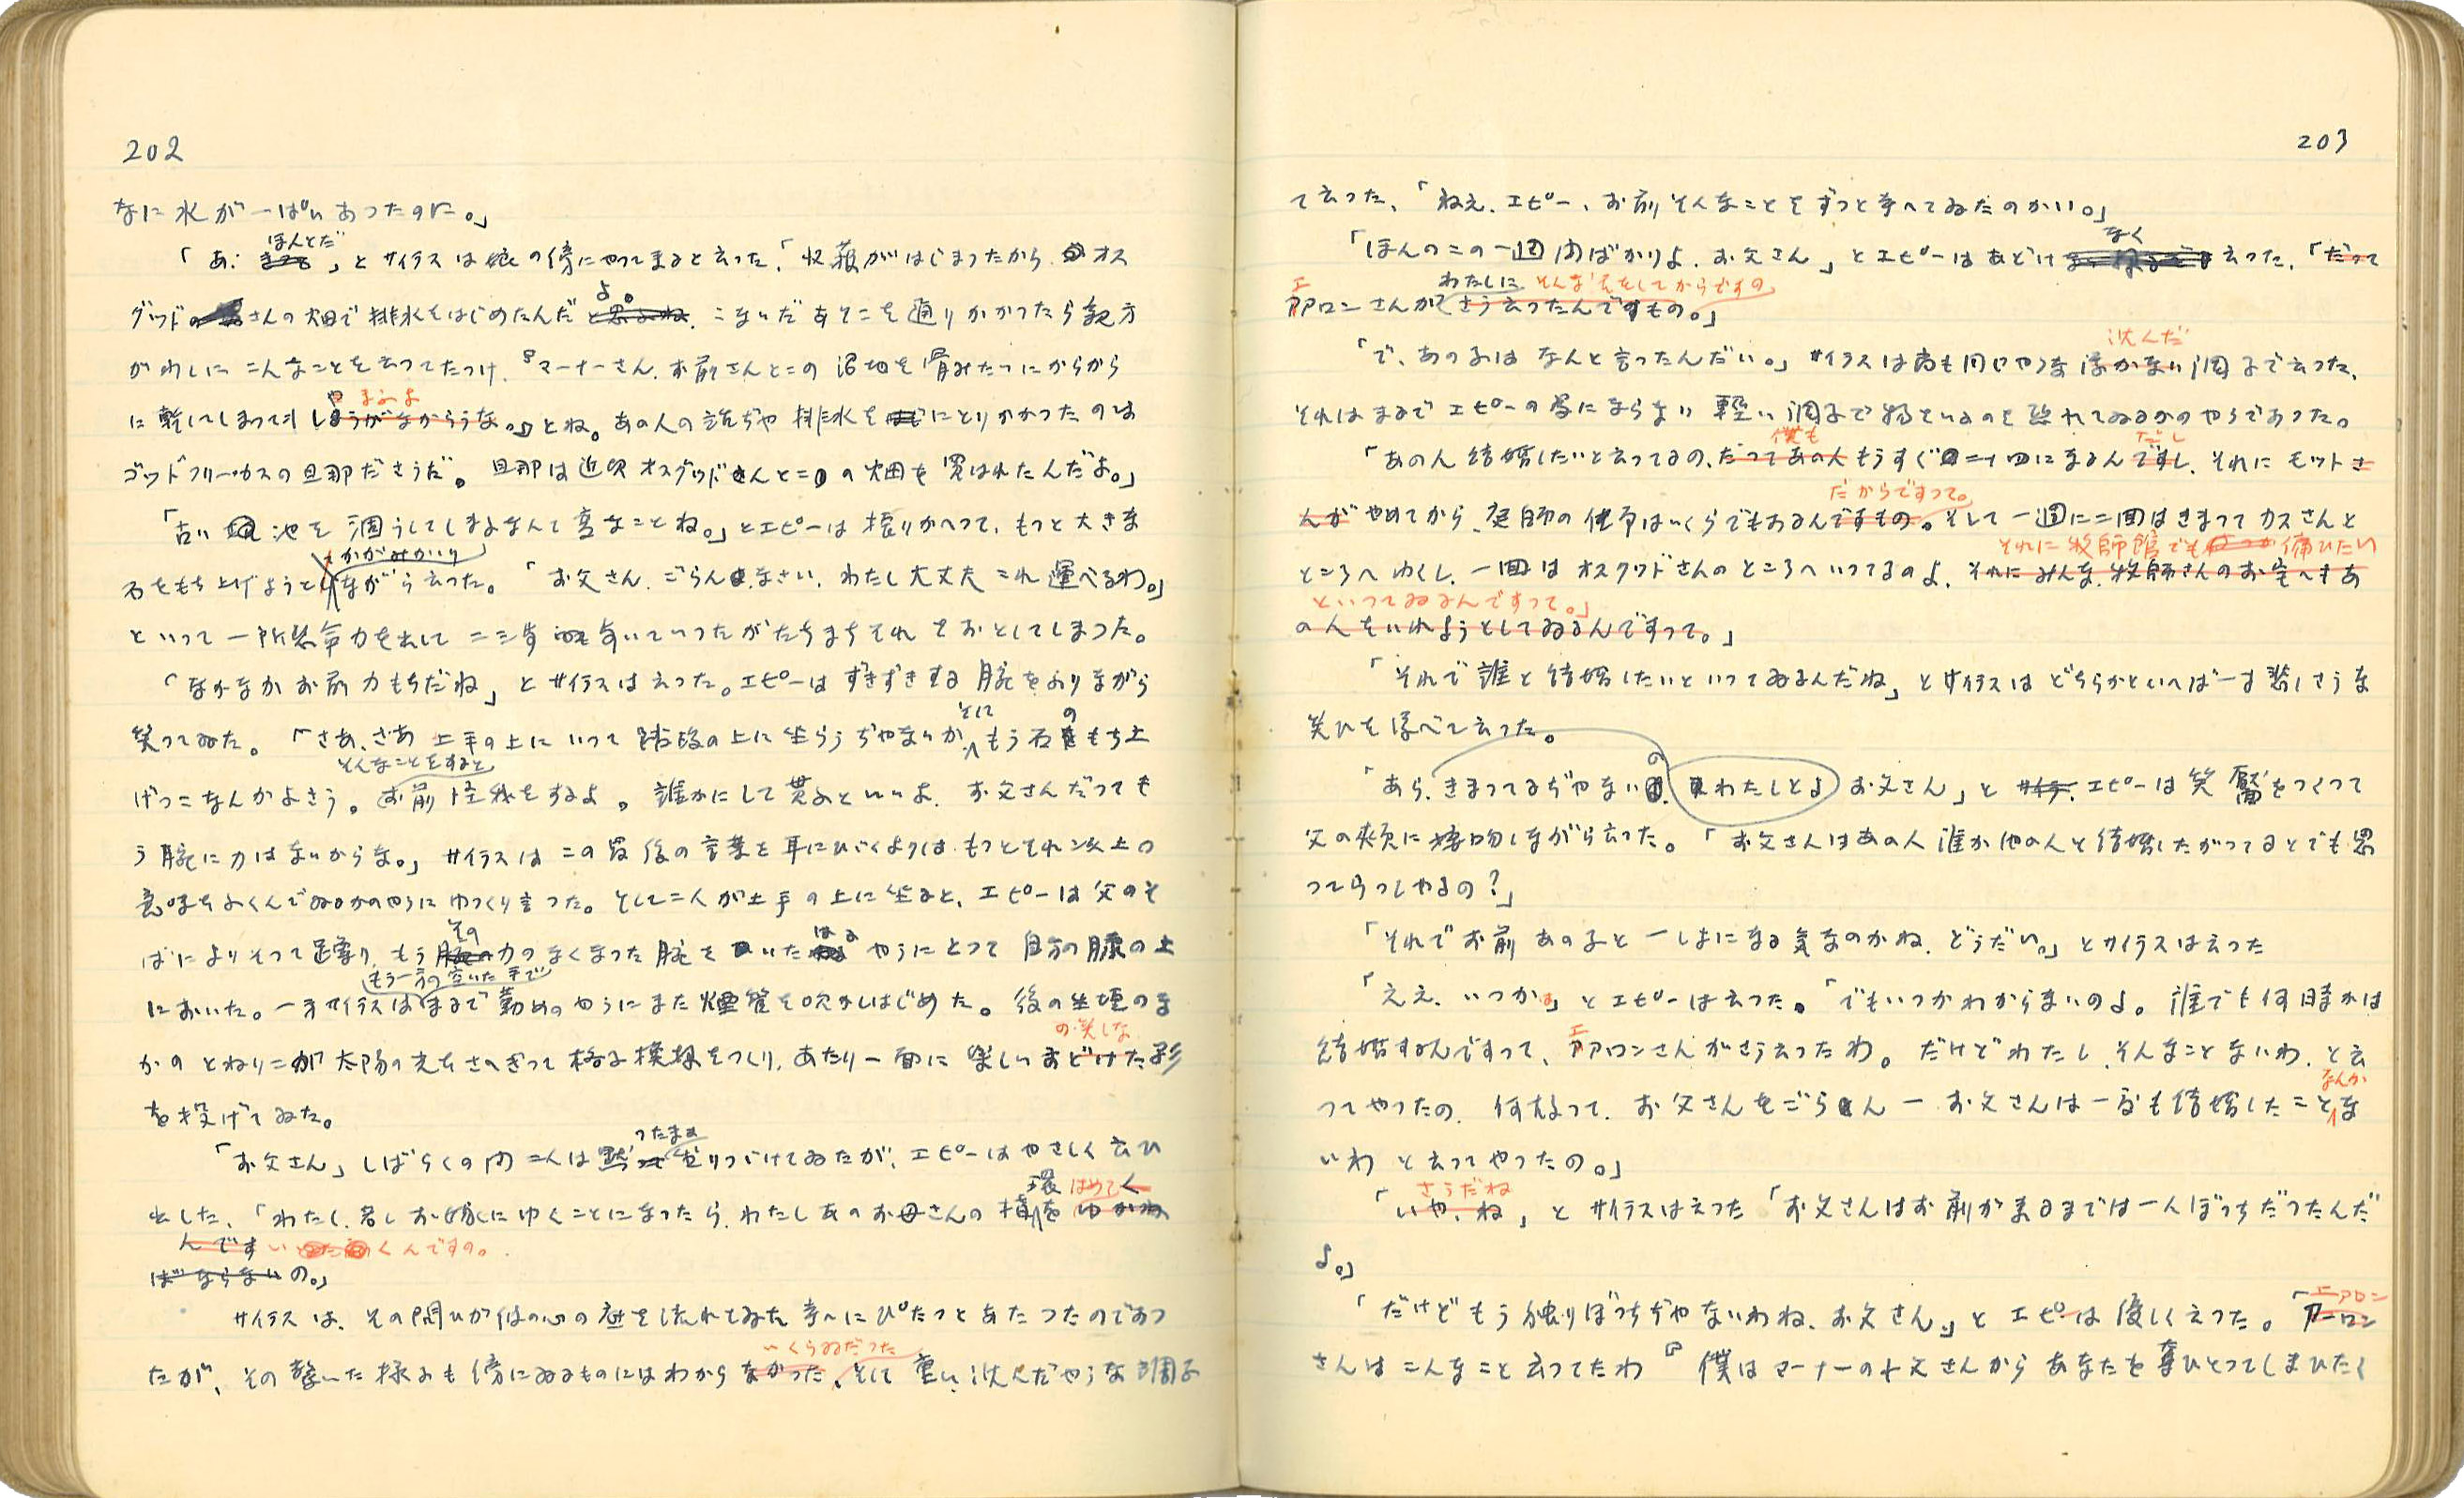 202
なに水が一ぱいあつたのに。」
「あゝほんとだ」とサイラスは娘の傍にやつてまゐると云つた、「収穫がはじまつたから、オス
グツドさんの畑で排水をはじめたんだよ。こないだあそこを通りかかつたら親方
がわしにこんなことを云つてたつけ、『マーナーさん、お前さんとこの沼地を骨みたいにからから
に乾してしまつてやるよ。』とね。あの人の話ぢや排水をにとりかかつたのは
ゴツドフリー・カスの旦那ださうだ。旦那は近頃オスグツドさんとこの畑を買はれたんだよ。」
「古い池を涸らしてしまふなんて変なことね。」とエピーは振りかへつて、もつと大きな
石をもち上げようとかがみかかりながら云つた。「お父さん、ごらんなさい、わたし大丈夫これ運べるわ。」
といつて一所懸命力を出して二三歩歩いていつたがたちまちそれをおとしてしまつた。
「なかなかお前力もちだね」とサイラスは云つた。エピーはずきずきする腕をふりながら
笑つてゐた。「さあ、さあ土手の上にいつて踏段の上に坐らうぢやないか、それにもう石のもち上
げつこなんかよさう。そんなことをするとお前怪我をするよ。誰かにして貰ふといいよ、お父さんだつても
う腕に力はないからな。」サイラスはこの最後の言葉を耳にひびくよりは、もつとそれ以上の
意味をふくんでゐるかのやうにゆつくり言つた。そして二人が土手の上に坐ると、エピーは父のそ
ばによりそつて、もうその力のなくなつた腕をいたはるやうにとつて自分の膝の上
においた。一方サイラスはもう一方の空いた手でまるで勤めのやうにまた煙管を吹かしはじめた。後の生垣のな
かのとねりこが太陽の光をさへぎつて格子模様をつくり、あたり一面に楽しいの、をどけた影
を投げてゐた。
「お父さん」しばらくの間二人は黙つたまま坐りつづけてゐたが、エピーはやさしく云ひ
出した、「わたし、若しお嫁にゆくことになつたら、わたしあのお母さんの指環を
んですの。」
サイラスは、その問ひが彼の心の底を流れてゐた考へにぴたつとあたつたのであつ
たが、その驚いた様子も傍にゐるものにはわからないくらゐだつた、そして重い、沈んだやうな調子
203
て云つた、「ねえ、エピー、お前そんなことをずつと考へてゐたのかい。」
「ほんのこの一週間ばかりよ、お父さん」とエピーはあどけなく云つた、「だつて
エアロンさんがわたしにそんな話をしてからですの。」
「で、あの子はなんと言つたんだい。」サイラスは尚も同じやうな沈んだ調子で云つた、
それはまるでエピーの為にならない軽い調子で物をいふのを恐れてゐるかのやうであつた。
「あの人結婚したいと云つてるの、僕ももうすぐ二十四になるんだし、それにモツトさ
んがやめてから、庭師の仕事はいくらでもあるんだからですつて。そして一週に二回はきまつてカスさんと
ところへゆくし、一回はオスグツドさんのところへいつてるのよ、それに牧師館でも傭ひたい
といつてゐるんですつて。」
「それで誰と結婚したいといつてゐるんだね」とサイラスはどちらかといへば一寸悲しさうな
笑ひを浮べて云つた。
「あら、わたしとよ、きまつてるぢやないの、お父さん」とエピーは笑靨をつくつて
父の頬に接吻しながら云つた。「お父さんはあの人誰か他の人と結婚したがつてるとでも思
つてらつしやるの?」
「それでお前あの子と一しよになる気なのかね、どうだい。」とサイラスは云つた
「ええ、いつかは」とエピーは云つた。「でもいつかわからないのよ。誰でも何時かは
結婚するんですつて、エアロンさんがさう云つたわ。だけどわたし、そんなことないわ、と云
つてやつたの、何故つて、お父さんをごらん一お父さんは一度も結婚したことなんかな
いわと云つてやつたの。」
「さうだね」とサイラスは云つた「お父さんはお前が来るまでは一人ぼつちだつたんだ
よ。」
「だけどもう独りぼつちぢやないわね、お父さん」とエピーは優しく云つた。「エアロン
さんはこんなこと云つてたわ『僕はマーナーの小父さんからあなたを奪ひとつてしまひたく